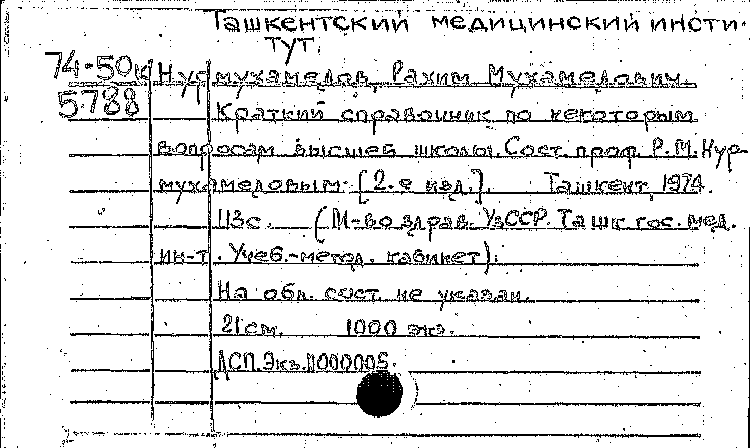 Ташкентский медицинский инсти-
тут.
74-50к Нурмухамедов, Рахим Мухамедович.
5788 Краткий справочник по некоторым
вопросам высшей школы. Сост. проф. Р.М. Нур-
мухамедовым. [2-е изд.]. Ташкент, 1974.
113с. (М-во здрав. УзССР. Ташк. гос. мед.
ин-т. Учеб.-метод. кабинет).
На обл. сост. не указан.
21см. 1000 экз.
АСП.Экз.N000005.